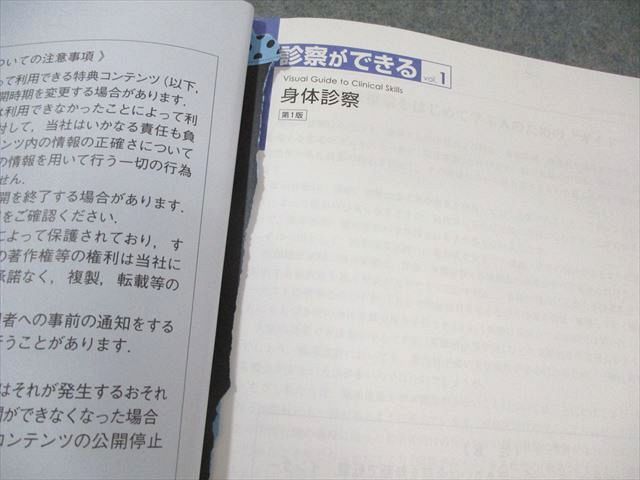 ついての注意事項 》
って利用できる特典コンテンツ（以下，
開時期を変更する場合があります．
は利用できなかったことによって利
対して，当社はいかなる責任も負
ンテンツ内の情報の正確さについて
の情報を用いて行う一切の行為
せん．
開を終了する場合があります．
をご確認ください．
によって保護されており，す
の著作権等の権利は当社に
承諾なく，複製，転載等の
者への事前の通知をする
行うことがあります．
はそれが発生するおそれ
開ができなくなった場合
コンテンツの公開停止
診察ができる vol.1
Visual Guide to Clinical Skills
身体診察
第1版